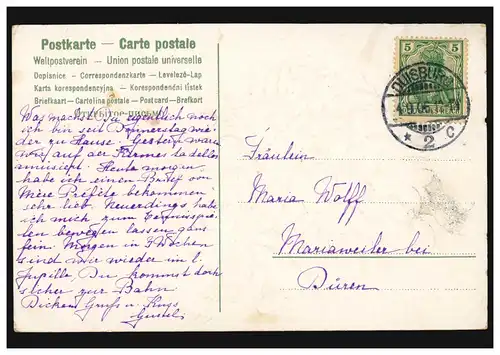 Postkarte — Carte postale
Weltpostverein — Union postale universelle
Dopisnice - Correspondenzkarte - Levelező-Lap
Karta korespondencyjna - Korespondenčni listek
Briefkaart - Cartolina postale - Postcard - Brefkort
Открытое письмо
Was machst Du eigentlich noch
ich bin seit Donnerstag wie
der zu Hause. Gestern waren
wir auf der Kirmes tadellos
amüsiert. Heute morgen
habe ich einen Brief von
Mère Préfète bekommen
sehr lieb. Neuerdings habe
ich mich zum Tennisspie
len bewegen lassen ganz
fein. Morgen in 3 Wochen
sind wir wieder im
Du kommst doch
sicher zur Bahn
Dicken Gruß u. Kuss
Gustel
5 5
DUISBURG
* 2 c
Fräulein
Maria Wolff
Mariaweiler bei
Düren